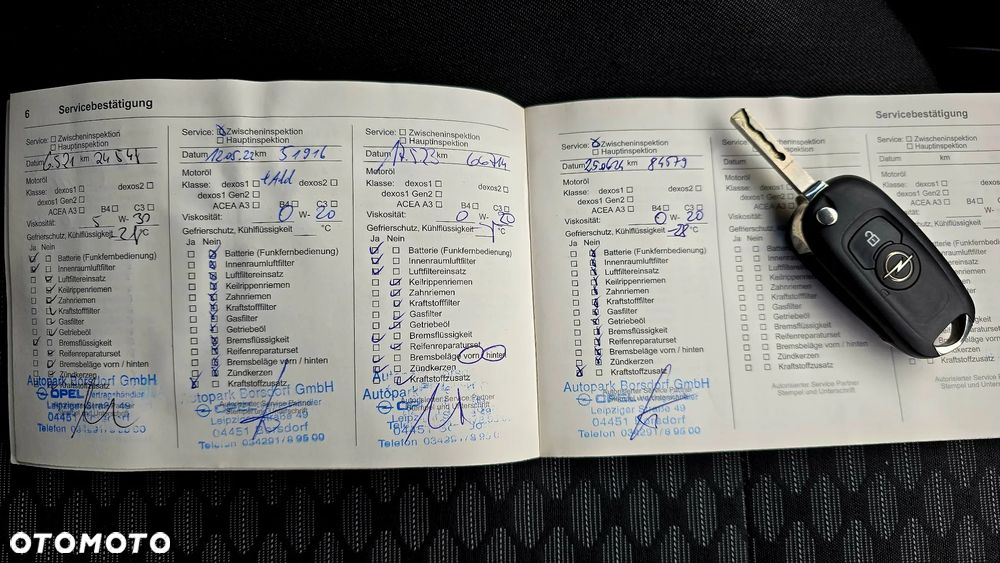 6 Servicebestätigung
Service: ☐ Zwischeninspektion
☐ Hauptinspektion
Datum 6.5.21 km 24541
Motoröl
Klasse: dexos1 ☐ dexos2 ☐
dexos1 Gen2 ☐
ACEA A3 ☐ B4 ☐ C3 ☐
Viskosität: 5 W- 30
Gefrierschutz, Kühlflüssigkeit °C
Ja Nein
Batterie (Funkfernbedienung)
Innenraumluftfilter
Luftfiltereinsatz
Keilrippenriemen
Zahnriemen
Kraftstofffilter
Gasfilter
Getriebeöl
Bremsflüssigkeit
Reifenreparaturset
Bremsbeläge vorn / hinten
Zündkerzen
Kraftstoffzusatz
Autopark Borsdorf GmbH
OPEL Vertragshändler
Leipziger Straße 49
04451 Borsdorf
Telefon 034291/8 95 00
Service: Zwischeninspektion
☐ Hauptinspektion
Datum 12.05.22 km 51916
Motoröl
Klasse: dexos1 ☐ dexos2 ☐
dexos1 Gen2 ☐
ACEA A3 ☐ B4 ☐ C3 ☐
Viskosität: 0 W- 20
Gefrierschutz, Kühlflüssigkeit °C
Ja Nein
Batterie (Funkfernbedienung)
Innenraumluftfilter
Luftfiltereinsatz
Keilrippenriemen
Zahnriemen
Kraftstofffilter
Gasfilter
Getriebeöl
Bremsflüssigkeit
Reifenreparaturset
Bremsbeläge vorn / hinten
Zündkerzen
Kraftstoffzusatz
Autopark Borsdorf GmbH
Autorisierter Service Partner
Stempel und Unterschrift
Leipziger Straße 49
04451 Borsdorf
Telefon 034291/8 95 00
Service: ☐ Zwischeninspektion
☐ Hauptinspektion
Datum km 66714
Motoröl
Klasse: dexos1 ☐ dexos2 ☐
dexos1 Gen2 ☐
ACEA A3 ☐ B4 ☐ C3 ☐
Viskosität: 0 W- 20
Gefrierschutz, Kühlflüssigkeit °C
Ja Nein
Batterie (Funkfernbedienung)
Innenraumluftfilter
Luftfiltereinsatz
Keilrippenriemen
Zahnriemen
Kraftstofffilter
Gasfilter
Getriebeöl
Bremsflüssigkeit
Reifenreparaturset
Bremsbeläge vorn / hinten
Zündkerzen
Kraftstoffzusatz
Autopark
Autorisierter Service Partner
Stempel und Unterschrift
Telefon
Servicebestätigung
Service: Zwischeninspektion
☐ Hauptinspektion
Datum 25.06.24 km 84579
Motoröl
Klasse: dexos1 ☐ dexos2 ☐
dexos1 Gen2 ☐
ACEA A3 ☐ B4 ☐ C3 ☐
Viskosität: 0 W- 20
Gefrierschutz, Kühlflüssigkeit -28 °C
Ja Nein
Batterie (Funkfernbedienung)
Innenraumluftfilter
Luftfiltereinsatz
Keilrippenriemen
Zahnriemen
Kraftstofffilter
Gasfilter
Getriebeöl
Bremsflüssigkeit
Reifenreparaturset
Bremsbeläge vorn / hinten
Zündkerzen
Kraftstoffzusatz
Autopark Borsdorf GmbH
Leipziger Straße 49
04451 Borsdorf
Telefon 034291/8 95 00
Service: ☐ Zwischeninspektion
☐ Hauptinspektion
Datum
Motoröl
Klasse: dexos1
dexos1
ACEA A3
Viskosität:
Gefrierschutz, Kühl
Ja Nein
Batterie
Innenraumluftfilter
Luftfiltereinsatz
Keilrippenriemen
Zahnriemen
Kraftstofffilter
Gasfilter
Getriebeöl
Bremsflüssigkeit
Reifenreparaturset
Bremsbeläge vorn / hinten
Zündkerzen
Kraftstoffzusatz
Autorisierter Service Partner
Stempel und Unterschrift
OTOMOTO